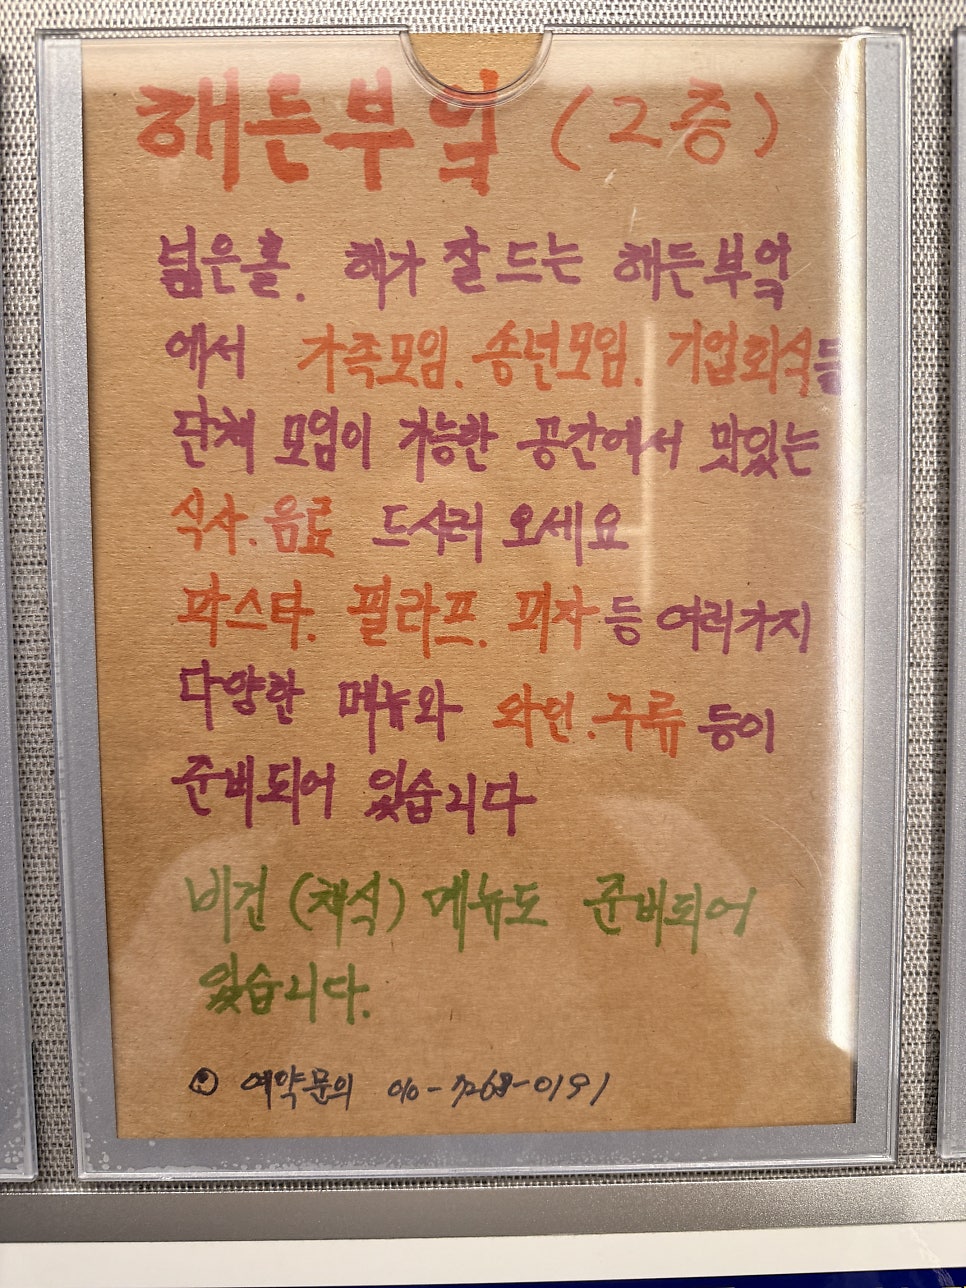 해든부엌 (2층)
넓은홀. 해가 잘 드는 해든부엌
에서 가족모임. 송년모임. 기업회식등
단체 모임이 가능한 공간에서 맛있는
식사. 음료 드시러 오세요
파스타. 필라프. 피자 등 여러가지
다양한 메뉴와 와인. 주류 등이
준비되어 있습니다
비건 (채식) 메뉴도 준비되어
있습니다.
⊙ 예약문의 010-7268-0191